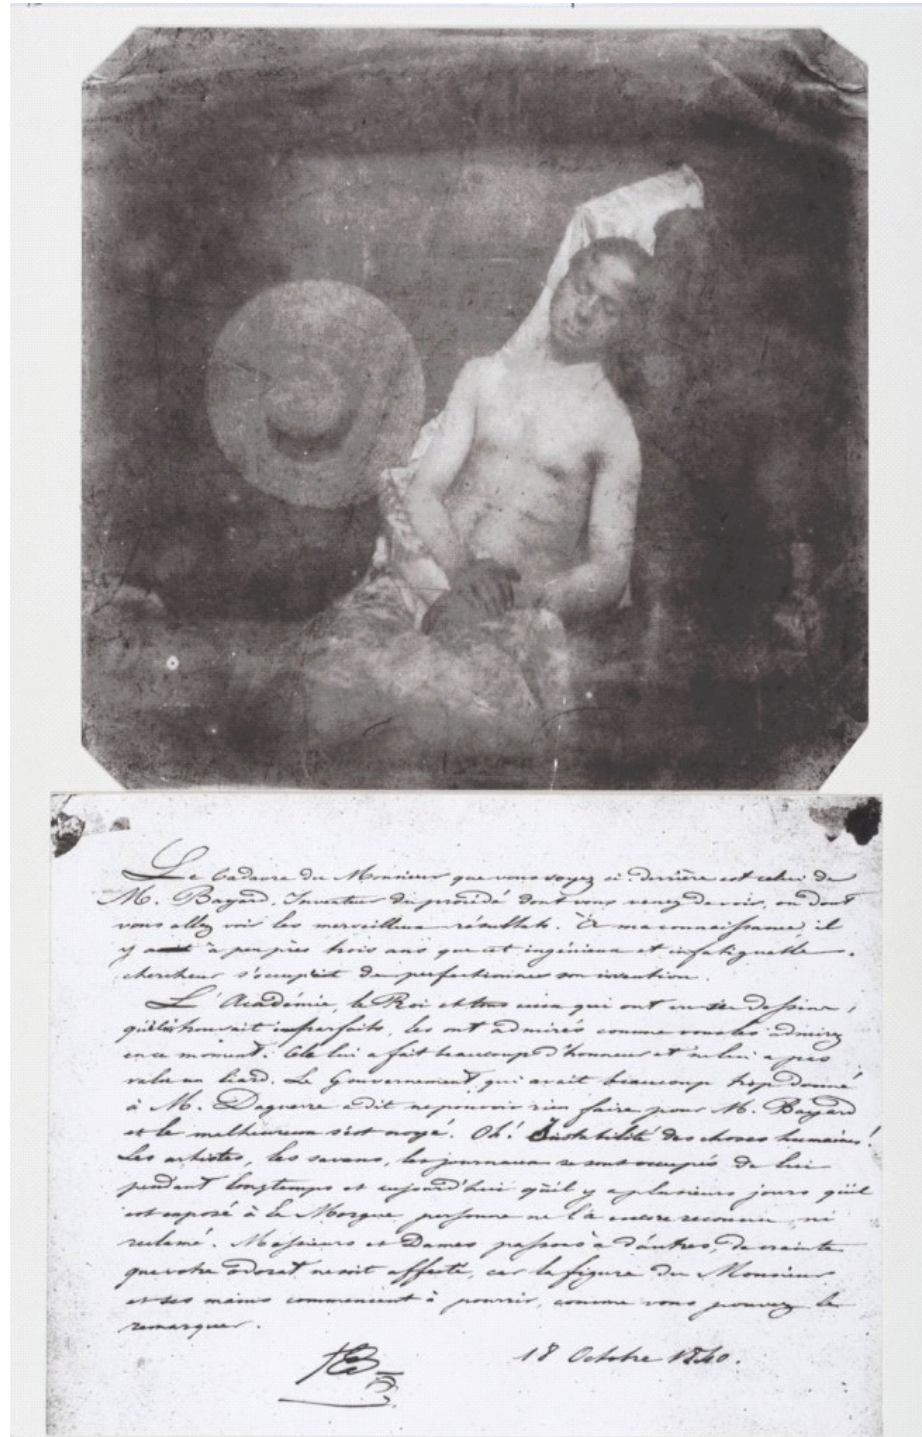 Le Cadavre du Monsieur que vous voyez ci-derrière est celui de
M. Bayard, Inventeur du procédé dont vous venez de voir, ou dont
vous allez voir les merveilleux résultats. À ma connaissance, il
y a à peu près trois ans que cet ingénieux et infatiguable
chercheur s'occupait de perfectionner son invention.
L'Académie, le Roi et tous ceux qui ont vu ses dessins,
qu'il trouvait imparfaits, les ont admirés comme vous les admirez
en ce moment. Cela lui a fait beaucoup d'honneur et ne lui a pas
valu un liard. Le Gouvernement, qui avait beaucoup trop donné
à M. Daguerre a dit ne pouvoir rien faire pour M. Bayard
et le malheureux s'est noyé. Oh! Instabilité des choses humaines!
Les artistes, les savans, les journaux se sont occupés de lui
pendant longtemps et aujourd'hui qu'il y a plusieurs jours qu'il
est exposé à la Morgue, personne ne l'a encore reconnu, ni
réclamé. Messieurs et Dames, passons à d'autres, de crainte
que votre odorat ne soit affecté, car la figure du Monsieur
et ses mains commencent à pourrir, comme vous pouvez le
remarquer.
18 Octobre 1840.